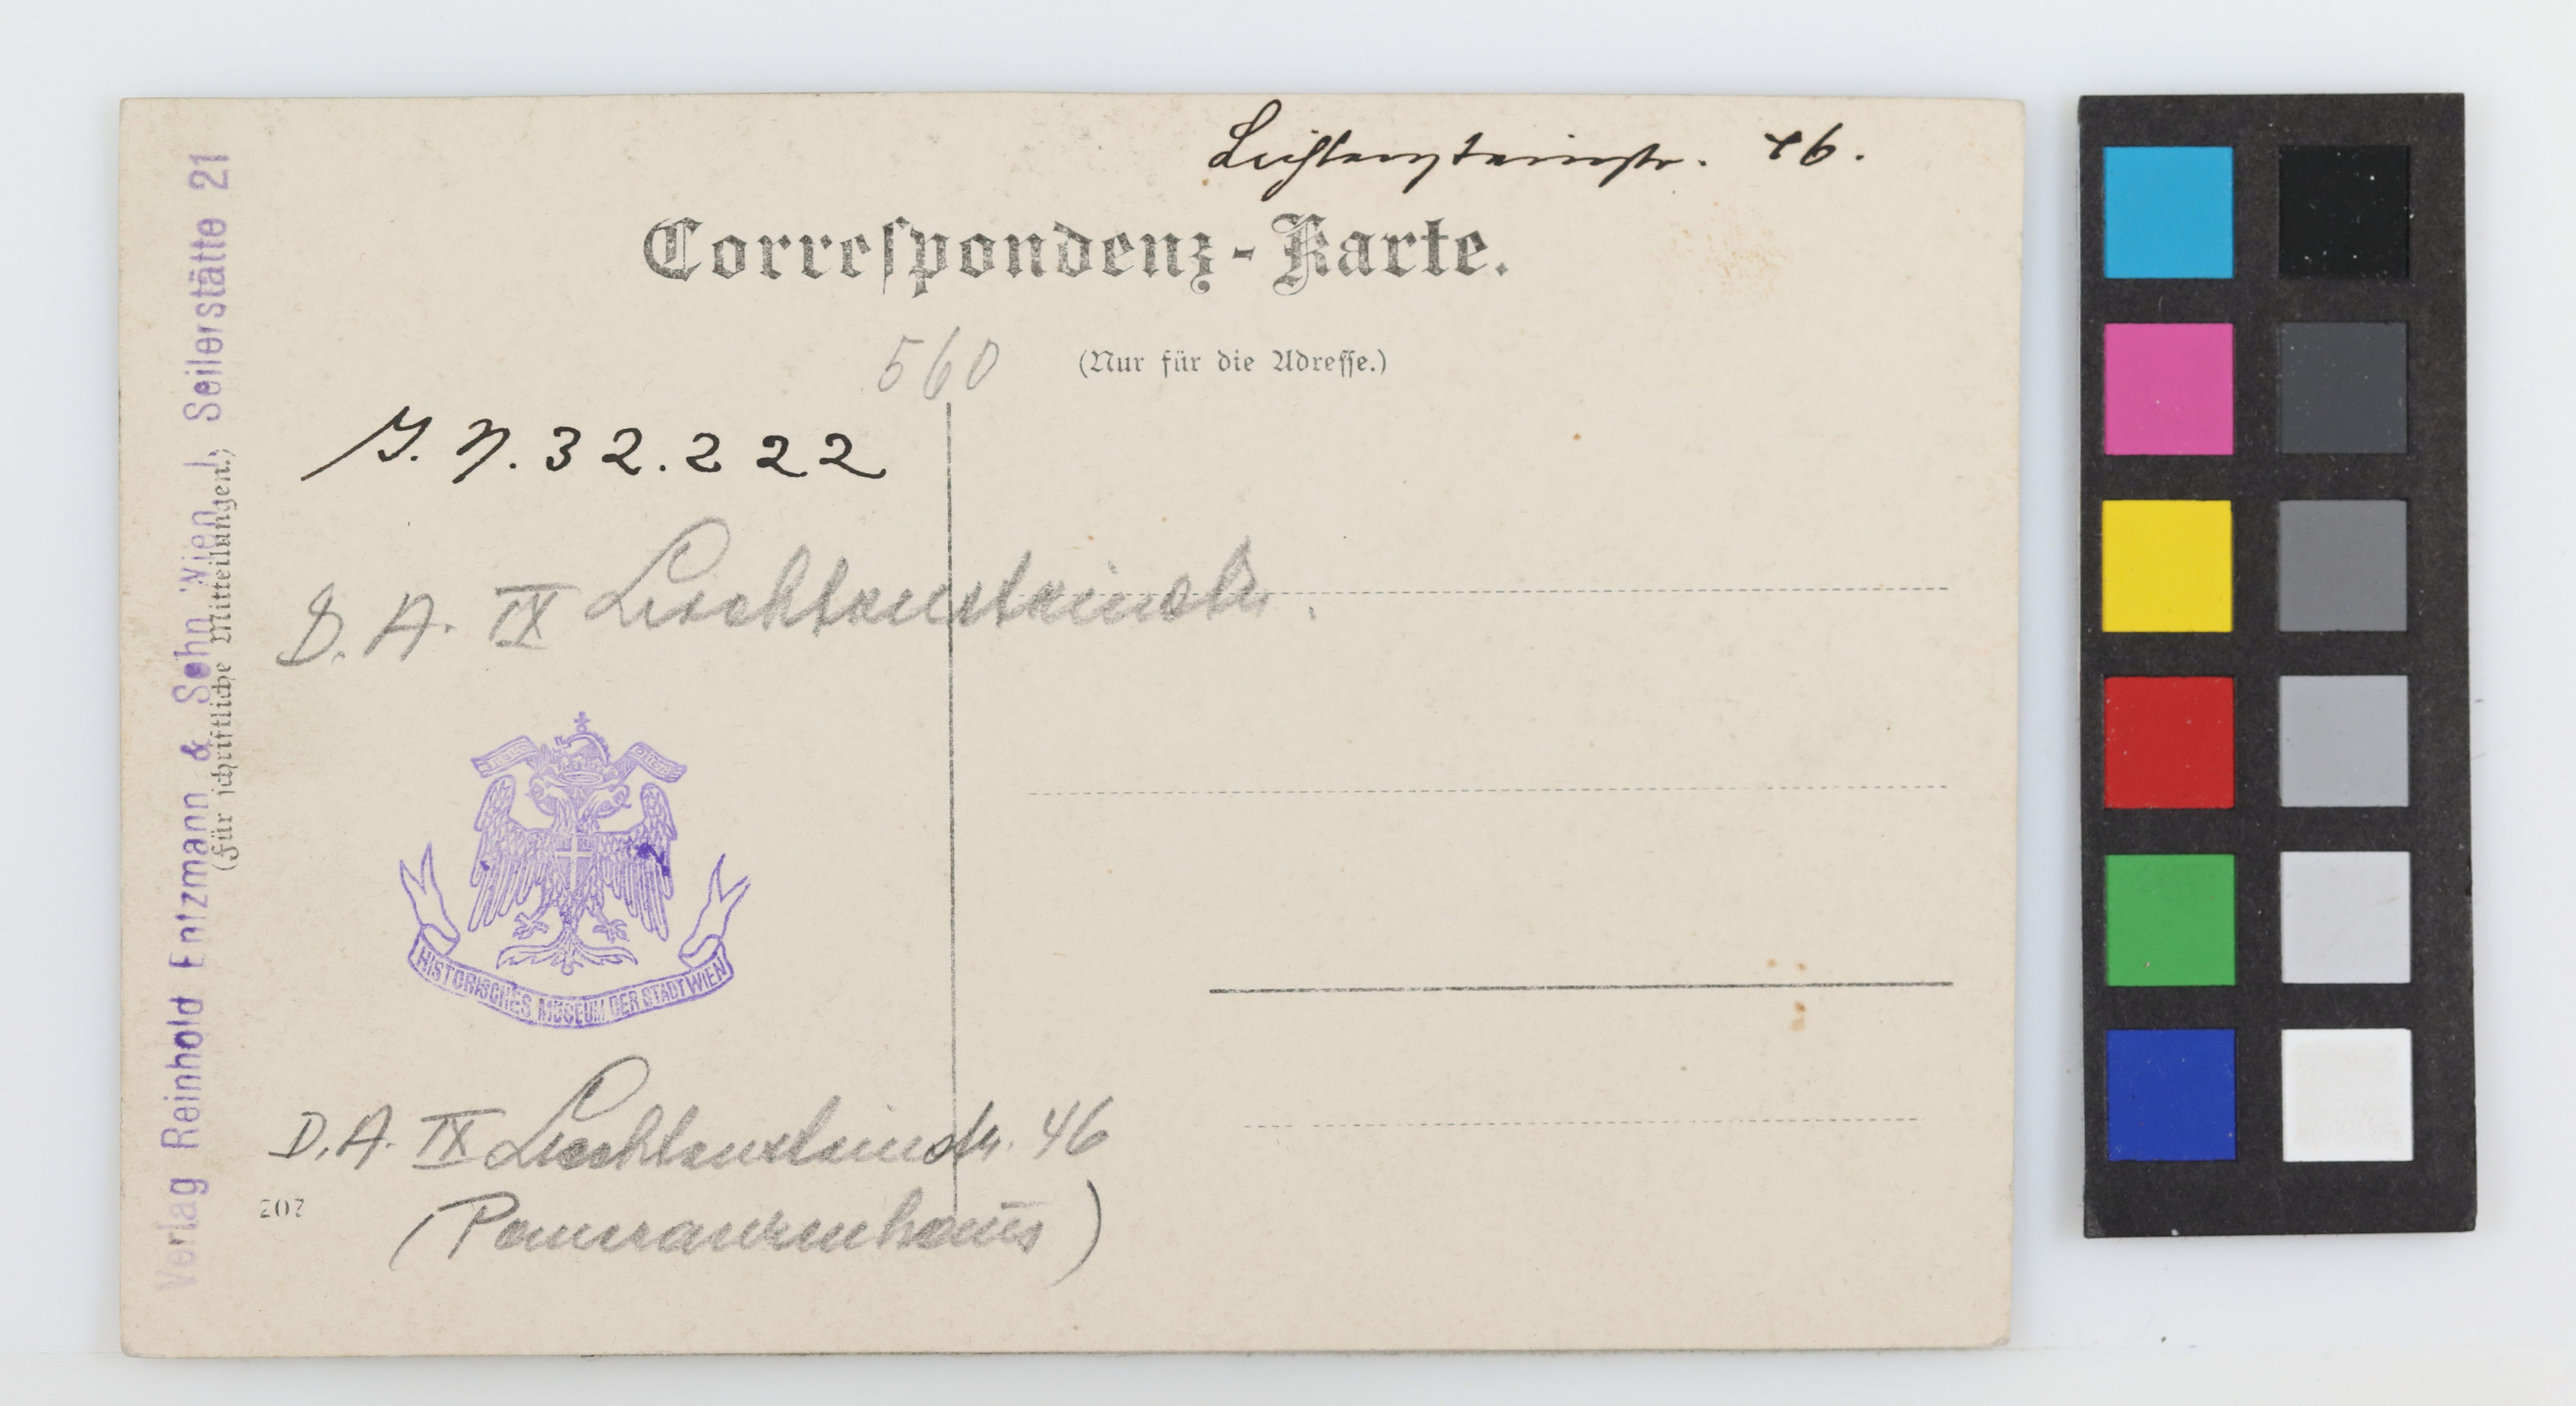 Liechtensteinstr. 46.
Correſpondenz-Karte.
560
(Nur für die Adreſſe.)
J. N. 32.222
D. A. IX Liechtensteinstr.
HISTORISCHES MUSEUM DER STADT WIEN
D. A. IX Liechtensteinstr. 46
(Pomeranzenhaus)
207
Verlag Reinhold Entzmann & Sohn Wien I, Seilerstätte 21
(Für ſchriftliche Mitteilungen.)